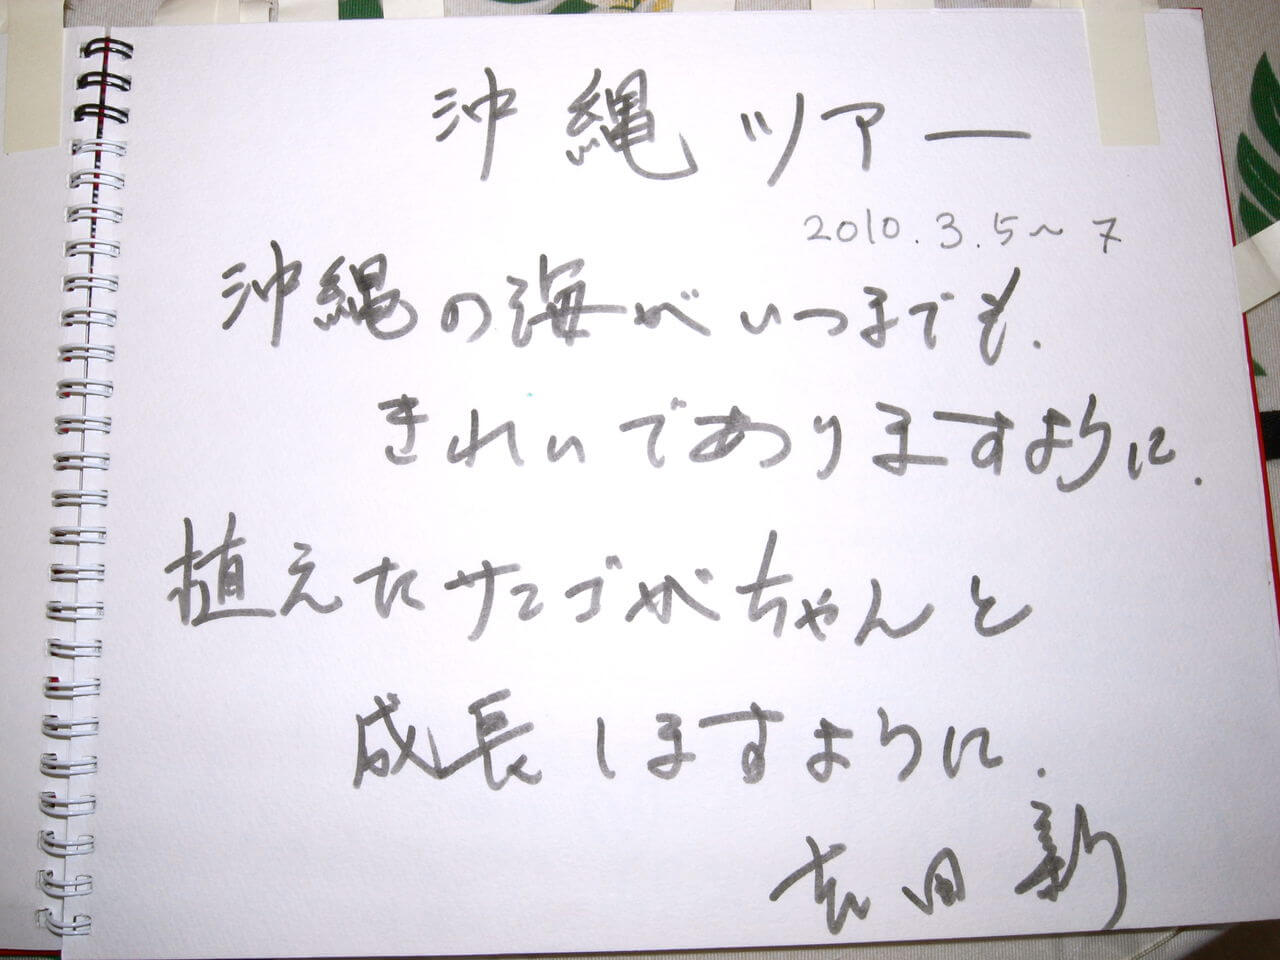 沖縄ツアー
2010.3.5〜7
沖縄の海がいつまでも.
きれいでありますように.
植えたサンゴがちゃんと
成長しますように.
田新